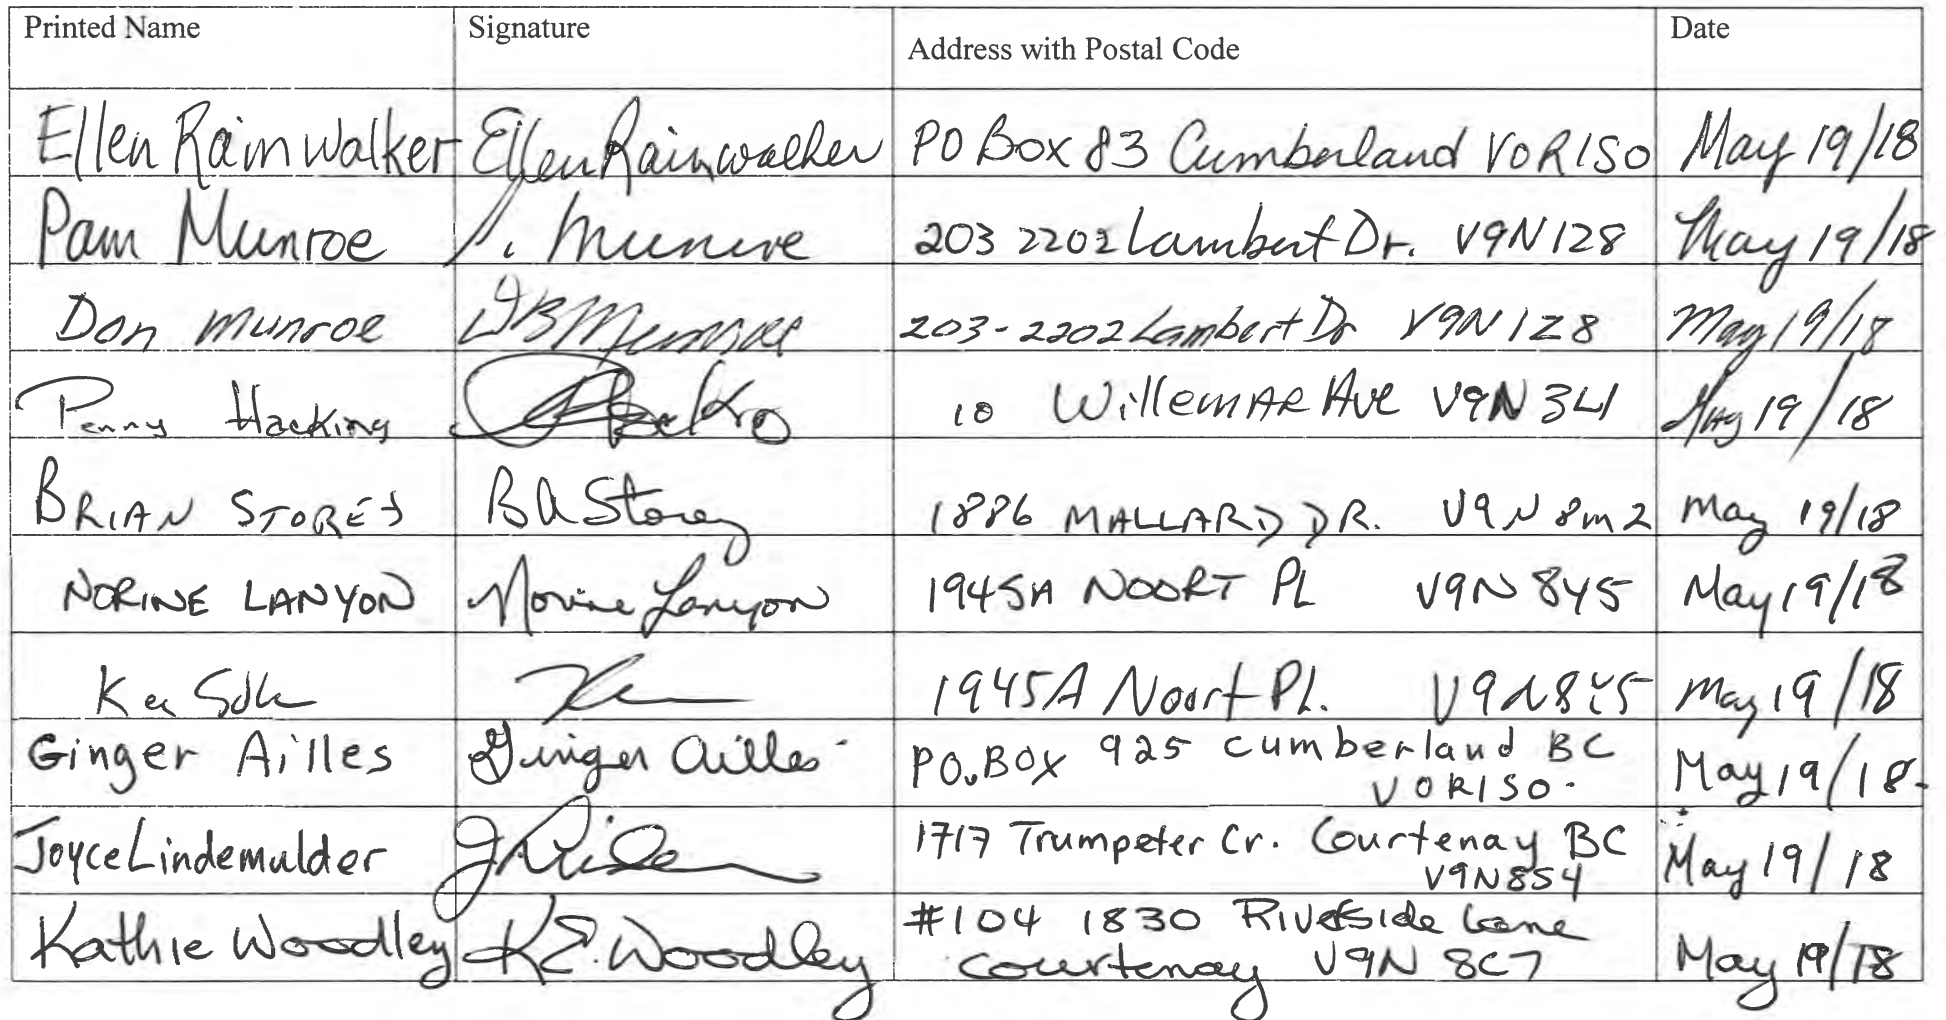 Printed Name Signature Address with Postal Code Date
Ellen Rainwalker Ellen Rainwalker PO Box 83 Cumberland V0R1S0 May 19/18
Pam Munroe P. Munroe 203 2202 Lambert Dr. V9N 1Z8 May 19/18
Don Munroe DB Munroe 203-2202 Lambert Dr V9N 1Z8 May 19/18
Penny Hacking 10 Willemar Ave V9N 3L1 May 19/18
BRIAN STOREY BA Storey 1886 MALLARD DR. V9N 8M2 May 19/18
NORINE LANYON Norine Lanyon 1945A NOORT PL V9N 8Y5 May 19/18
1945A Noort PL. V9N8Y5 May 19/18
Ginger Ailles Ginger Ailles PO.BOX 925 Cumberland BC
V0R1S0. May 19/18.
Joyce Lindemulder 1717 Trumpeter Cr. Courtenay BC
V9N8S4 May 19/18
Kathie Woodley K.E. Woodley #104 1830 Riverside Lane
Courtenay V9N 8C7 May 19/18